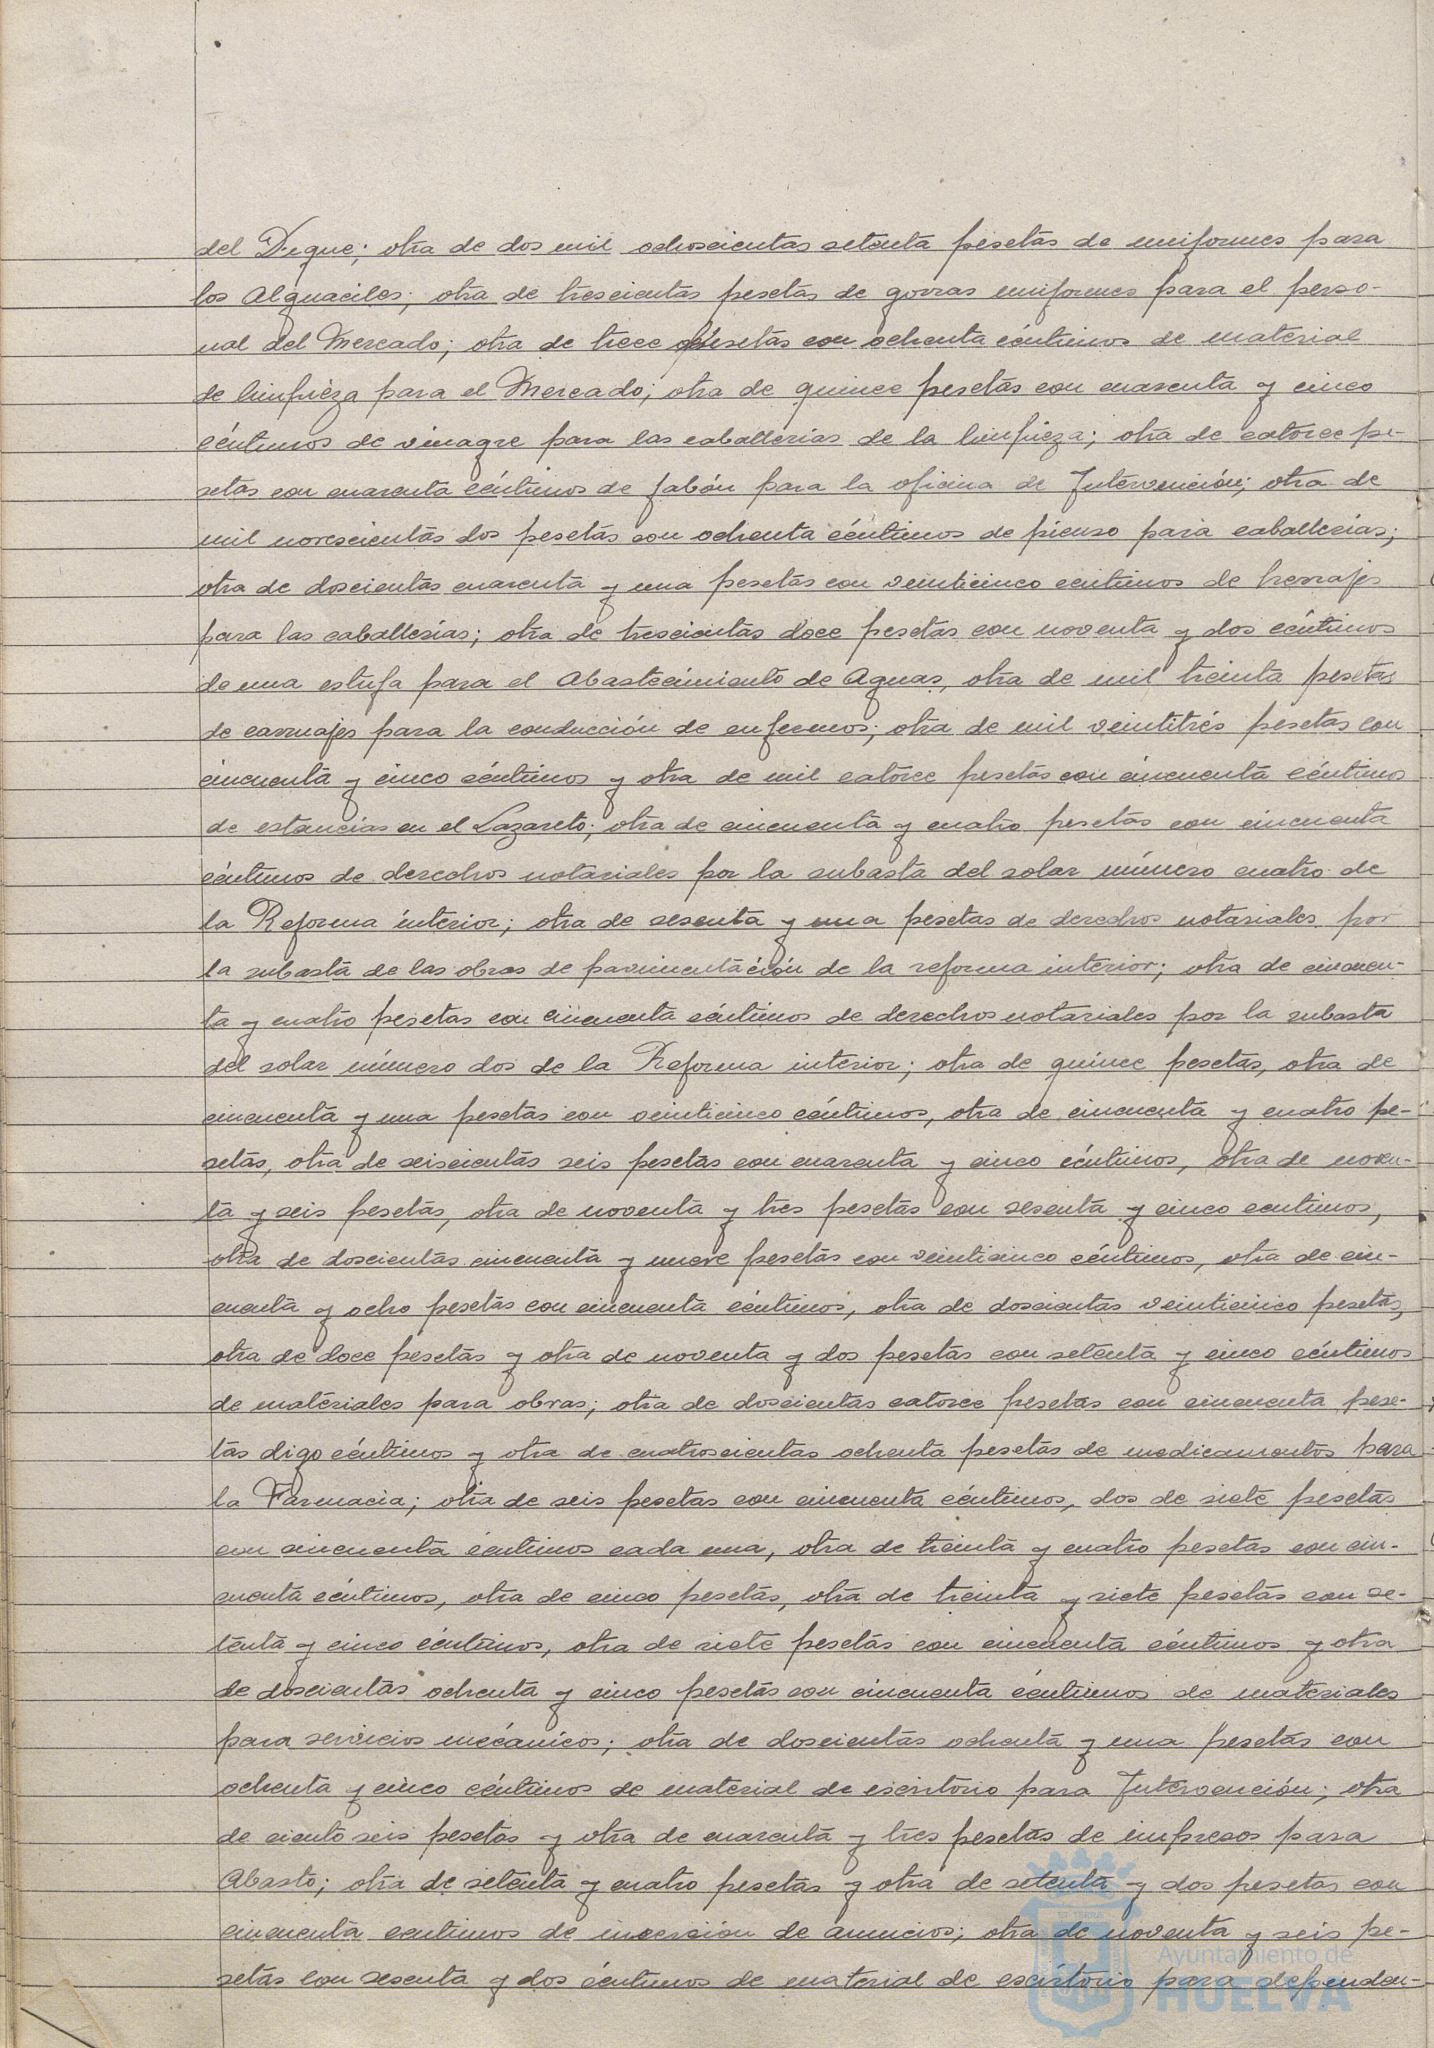 del Dique; otra de dos mil ochoscientas setenta pesetas de uniformes para
los Alguaciles; otra de trescientas pesetas de gorras uniformes para el perso-
nal del Mercado; otra de trece pesetas con ochenta céntimos de material
de limpieza para el Mercado; otra de quince pesetas con cuarenta y cinco
céntimos de vinagre para las caballerias de la limpieza; otra de catorce pe-
setas con cuarenta céntimos de jabón para la oficina de Intervención; otra de
mil novescientas dos pesetas con ochenta céntimos de pienso para caballerias;
otra de doscientas cuarenta y una pesetas con veinticinco centimos de herrajes
para las caballerías; otra de trescientas doce pesetas con noventa y dos céntimos
de una estufa para el Abastecimiento de Aguas, otra de mil treinta pesetas
de carruajes para la conducción de enfermos; otra de mil veintitrés pesetas con
cincuenta y cinco céntimos y otra de mil catorce pesetas con cincuenta céntimos
de estancias en el Lazareto; otra de cincuenta y cuatro pesetas con cincuenta
céntimos de derechos notariales por la subasta del solar número cuatro de
la Reforma interior; otra de sesenta y una pesetas de derechos notariales por
la subasta de las obras de pavimentación de la reforma interior; otra de cincuen-
ta y cuatro pesetas con cincuenta céntimos de derechos notariales por la subasta
del solar número dos de la Reforma interior; otra de quince pesetas, otra de
cincuenta y una pesetas con veinticinco céntimos, otra de cincuenta y cuatro pe-
setas, otra de seiscientas seis pesetas con cuarenta y cinco céntimos, otra de noven-
ta y seis pesetas, otra de noventa y tres pesetas con sesenta y cinco centimos,
otra de doscientas cincuenta y nueve pesetas con veinticinco céntimos, otra de cin-
cuenta y ocho pesetas con cincuenta céntimos, otra de doscientas veinticinco pesetas,
otra de doce pesetas y otra de noventa y dos pesetas con setenta y cinco céntimos
de materiales para obras; otra de doscientas catorce pesetas con cincuenta pese-
tas digo céntimos y otra de cuatroscientas ochenta pesetas de medicamentos para
la Farmacia; otra de seis pesetas con cincuenta céntimos, dos de siete pesetas
con cincuenta céntimos cada una, otra de treinta y cuatro pesetas con cin-
cuenta céntimos, otra de cinco pesetas, otra de treinta y siete pesetas con se-
tenta y cinco céntimos, otra de siete pesetas con cincuenta céntimos y otra
de doscientas ochenta y cinco pesetas con cincuenta céntimos de materiales
para servicios mecánicos; otra de doscientas ochenta y una pesetas con
ochenta y cinco céntimos de material de escritorio para Intervención; otra
de ciento seis pesetas y otra de cuarenta y tres pesetas de impresos para
Abasto; otra de setenta y cuatro pesetas y otra de setenta y dos pesetas con
cincuenta centimos de inserción de anuncios; otra de noventa y seis pe-
setas con sesenta y dos céntimos de material de escritorio para dependen-
Ayuntamiento de
HUELVA